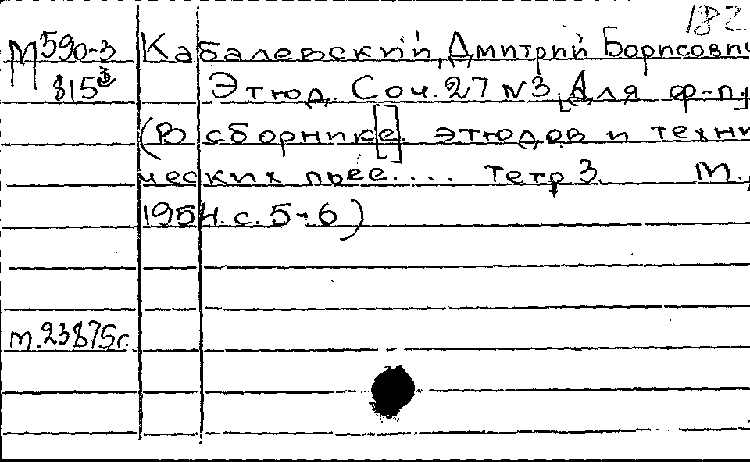 182
М590-3 Кабалевский, Дмитрий Борисович
815 Этюд. Соч. 27 N3. [Для ф-п]
(В сборник[е] этюдов и техни
ческих пьес.... Тетр 3. М.,
1954. с. 5-6)
м.23875г.